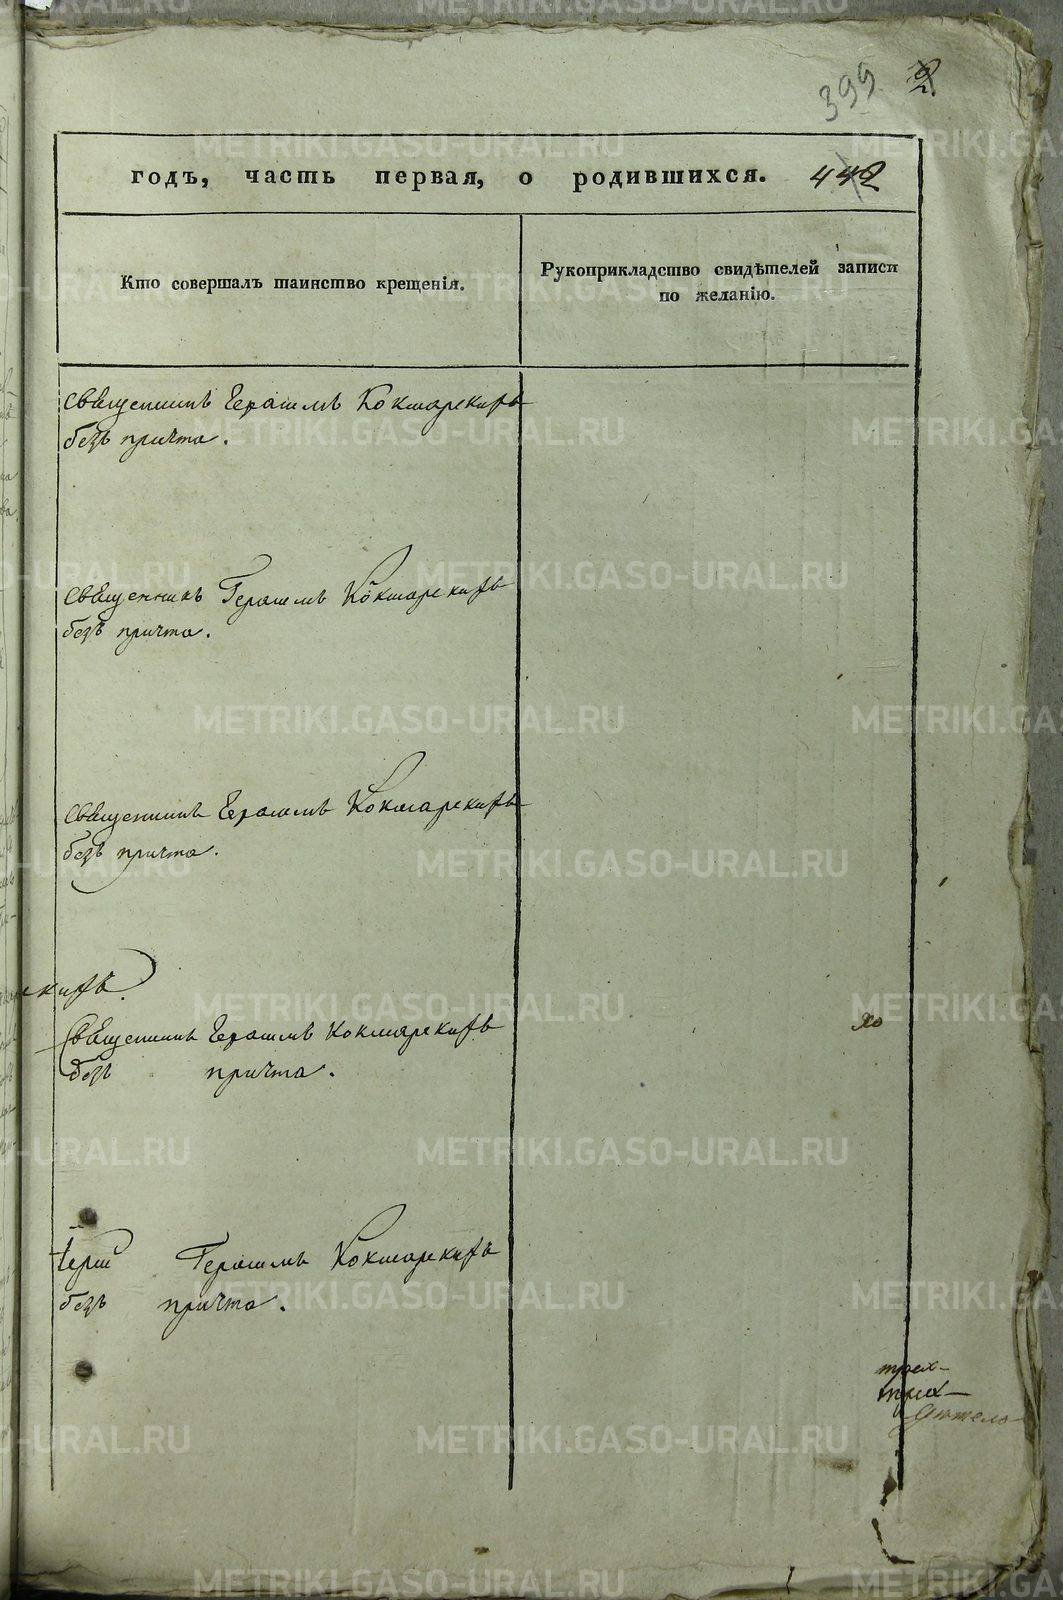 399 2.
годъ, часть первая, о родившихся. 442
Кто совершалъ таинство крещенія.
Рукоприкладство свидѣтелей записи
по желанію.
Священникъ Герасимъ Кокшарскихъ
безъ причта.
Священникъ Герасимъ Кокшарскихъ
безъ причта.
Священникъ Герасимъ Кокшарскихъ
безъ причта.
скихъ.
Священникъ Герасимъ Кокшарскихъ
безъ причта.
Іерей Герасимъ Кокшарскихъ
безъ причта.
METRIKI.GASO-URAL.RU